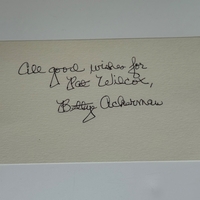 All good wishes for
Pat Wilcox,
Bettye Ackerman